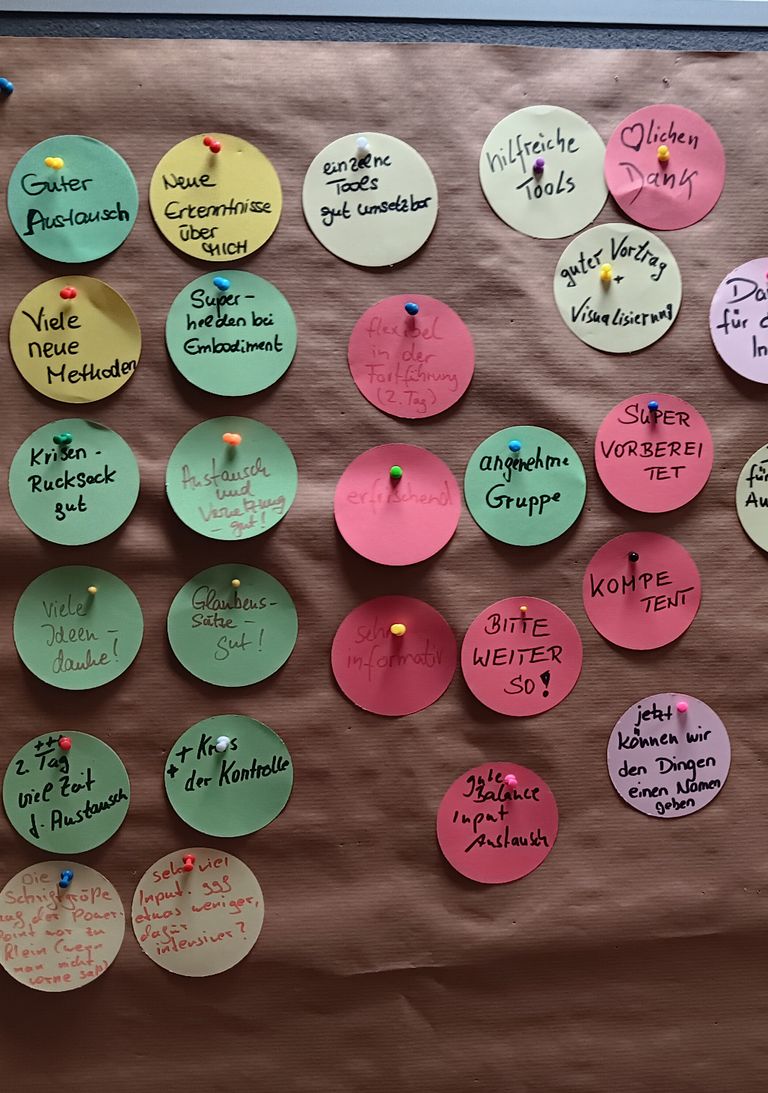 Guter
Austausch
Neue
Erkenntnisse
über
MICH
einzelne
Tools
gut umsetzbar
hilfreiche
Tools
♡lichen
Dank
guter Vortrag
+
Visualisierung
Da
für d
In
Viele
neue
Methoden
Super-
helden bei
Embodiment
flexibel
in der
Fortführung
(2. Tag)
Krisen-
Rucksack
gut
Austausch
und
Vernetzung
- gut!
erfrischend
angenehme
Gruppe
SUPER
VORBEREI
TET
für
Au
Viele
Ideen -
danke!
Glaubens-
Sätze -
gut!
sehr
informativ
BITTE
WEITER
SO!
KOMPE
TENT
+++
2. Tag
viel Zeit
f. Austausch
+ Kreis
+ der Kontrolle
gute
Balance
Input
Austausch
jetzt
können wir
den Dingen
einen Namen
geben
Die
Schriftgröße
der Power-
Point war zu
klein (wenn
man nicht
vorne saß)
sehr viel
Input. ggf
etwas weniger,
dafür
intensiver?